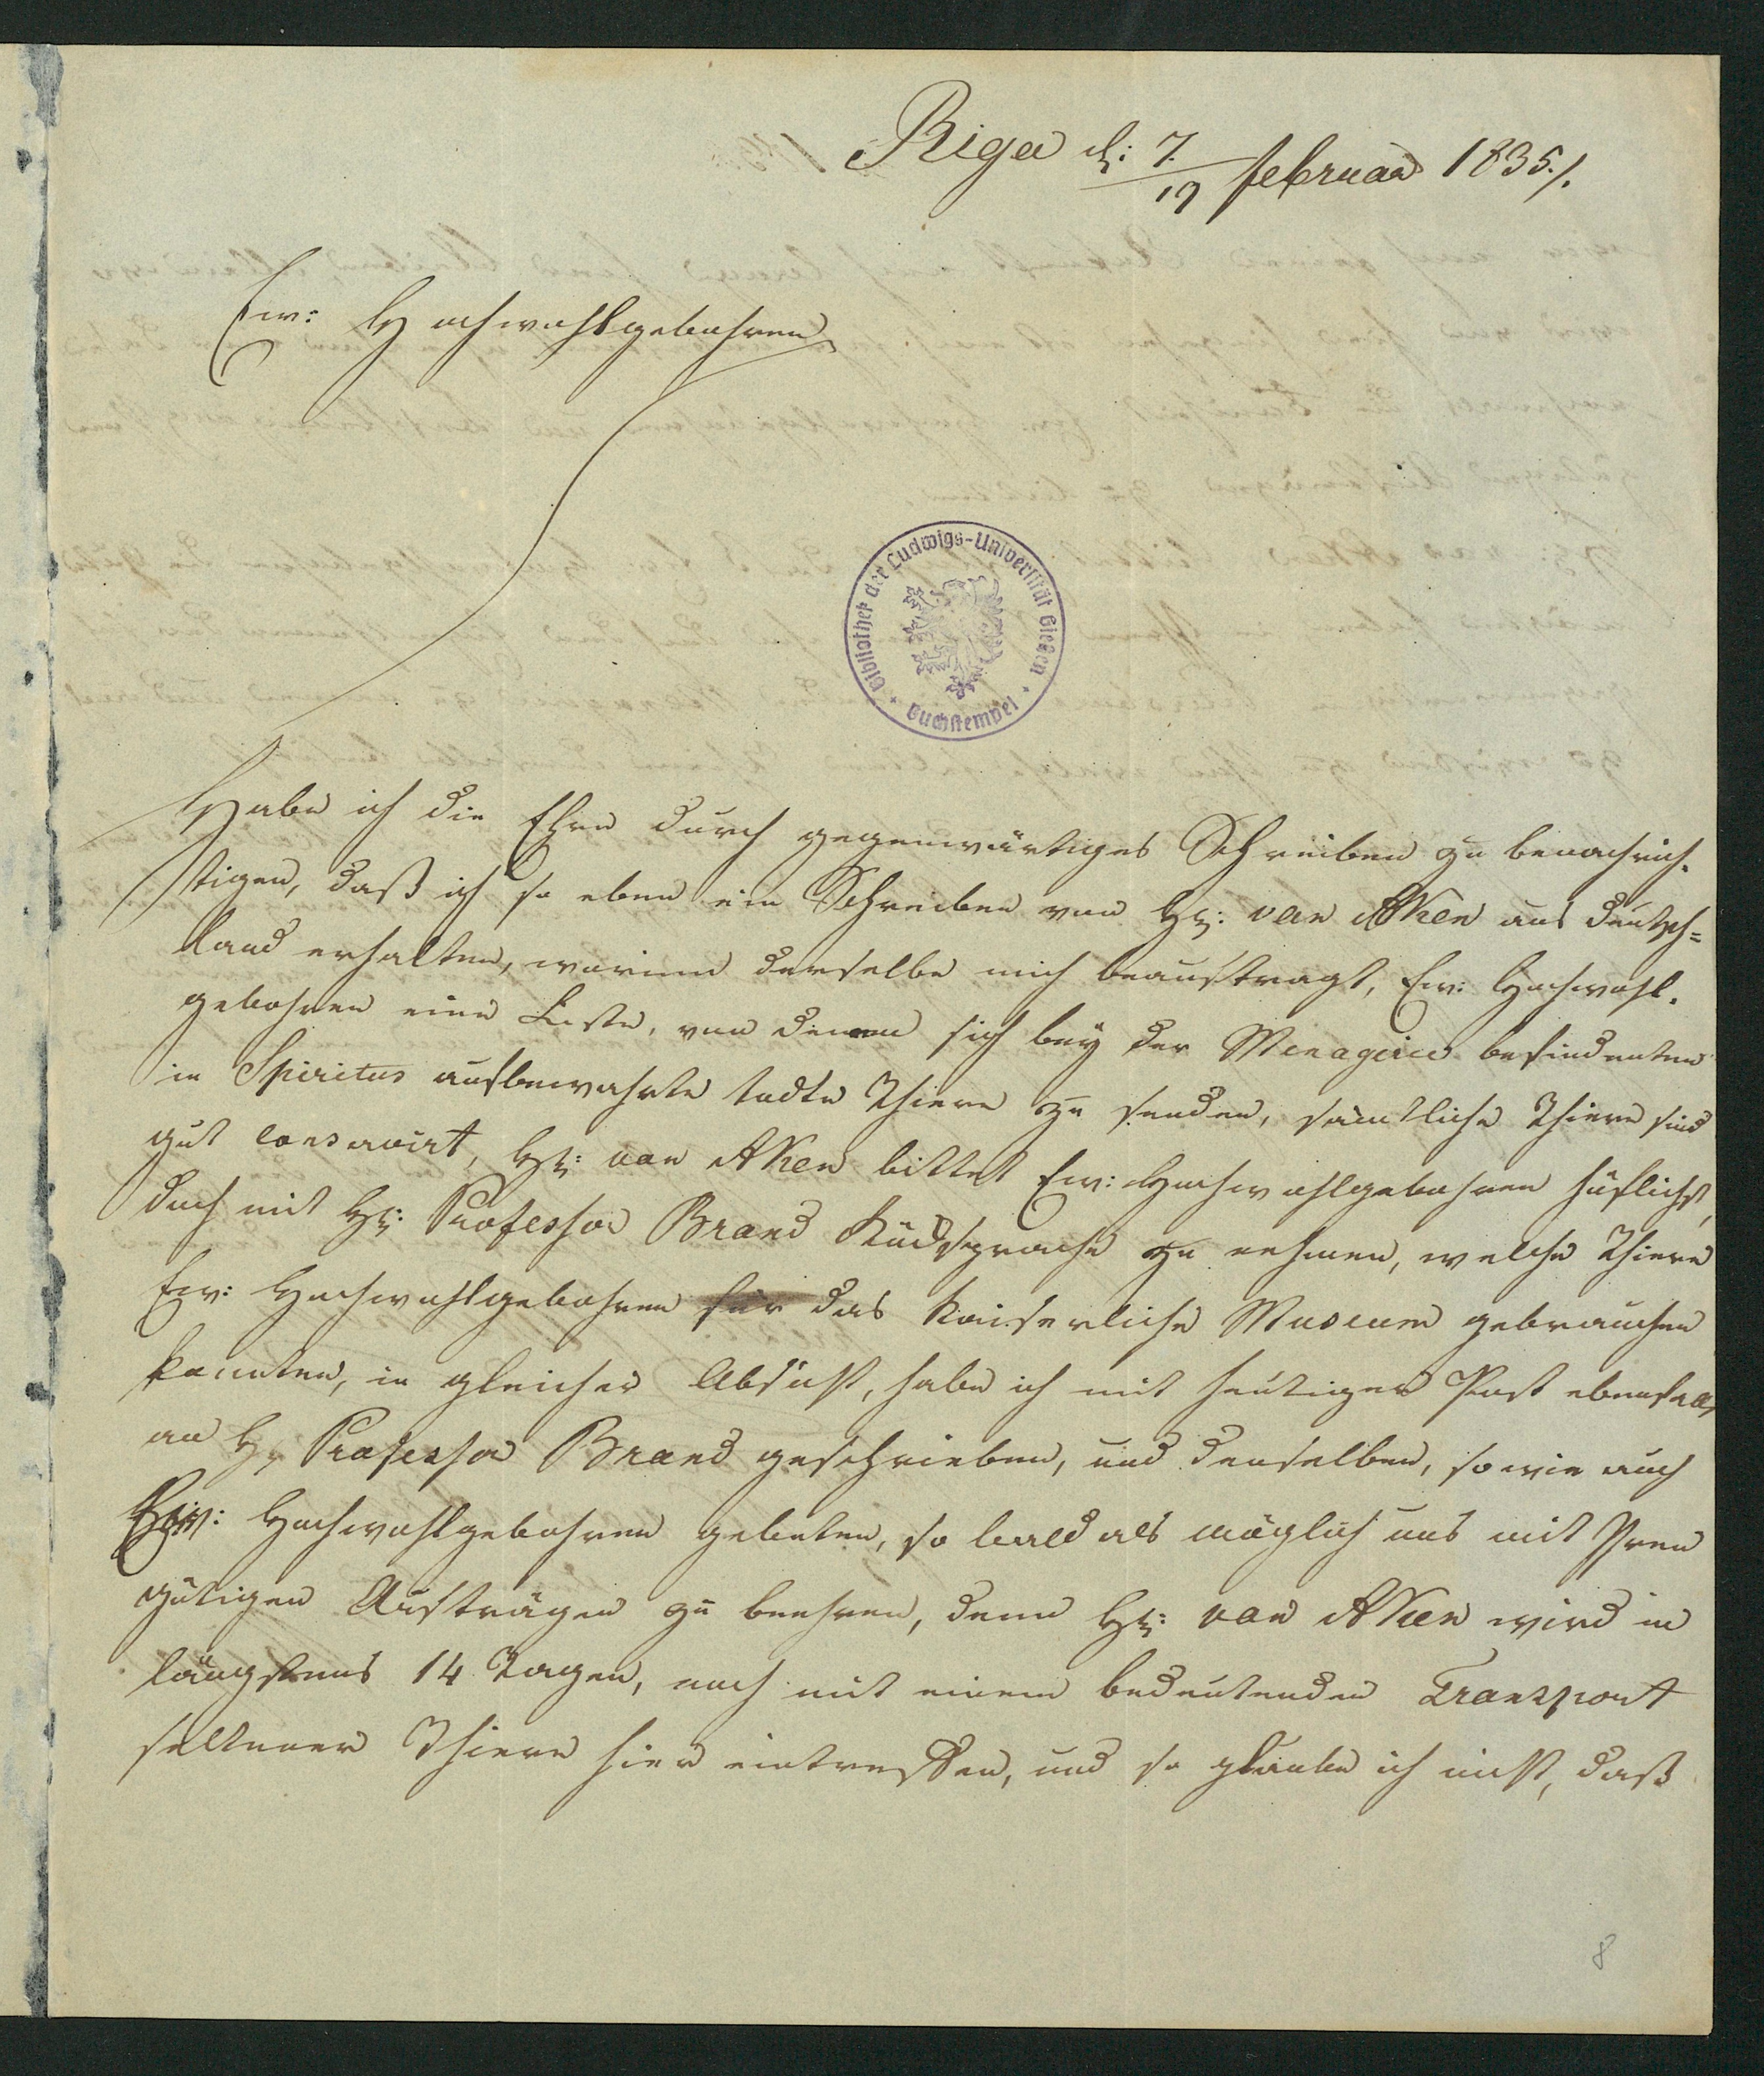 Riga d: 7./19 februar 1835./.
Ew: Hochwohlgebohren
Bibliothek der Ludwigs-Universität Gießen
Buchstempel
Habe ich die Ehre durch gegenwärtiges Schreiben zu benachrich-
tigen, daß ich so eben ein Schreiben von Hr: van Aken aus Deutsch=
land erhalten, worinn derselbe mich beauftragt, Ew: Hochwohl-
gebohren eine Liste, von denen sich bey der Menagerie befindenten
in Spiritus aufbewahrte todte Thiere zu senden, sämtliche Thiere sind
gut conservirt, Hr: van Aken bittet Ew: Hochwohlgebohren höflichst,
doch mit Hr: Professor Brand Rücksprache zu nehmen, welche Thiere
Ew: Hochwohlgebohren für das Kaiserliche Museum gebrauchen
konnten, in gleicher Absicht, habe ich mit heutiger Post ebenfals
an Hr Professor Brand geschrieben, und denselben, so wie auch
Ew: Hochwohlgebohren gebeten, so bald als möglich uns mit Ihren
gütigen Aufträgen zu beehren, denn Hr: van Aken wird in
längstens 14 Tagen, noch mit einem bedeutenden Transport
seltener Thiere hier eintreffen, und so glaube ich nicht, daß
8